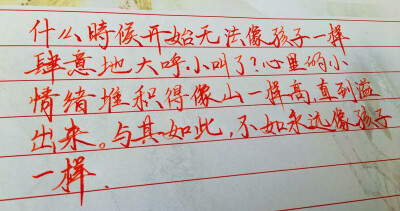 什么時候开始无法像孩子一样
肆意地大呼小叫了？心里的小
情绪堆积得像山一样高，直到溢
出来。与其如此，不如永远像孩子
一样．